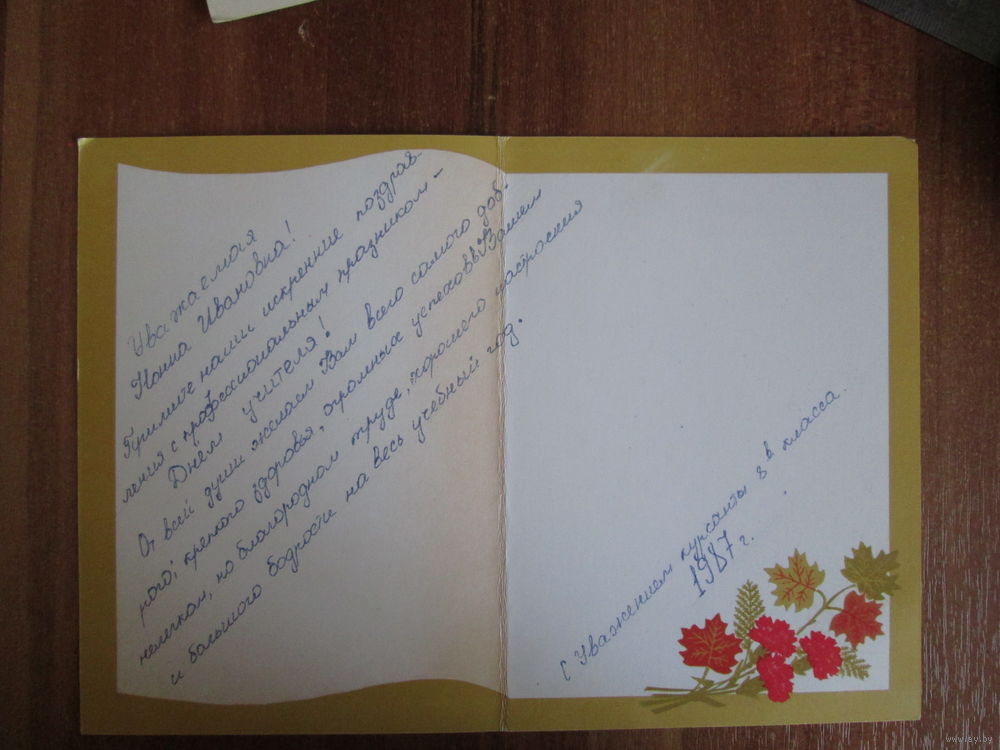 Уважаемая
Нонна Ивановна!
Примите наши искренние поздрав-
ления с профессиональным праздником -
Днём учителя!
От всей души желаем Вам всего самого доб-
рого; крепкого здоровья, огромных успехов в Вашем
нелегком, но благородном труде, хорошего настроения
и большого бодрости на весь учебный год.
С Уважением курсанты 8 в класса.
1987 г.
www.ay.by